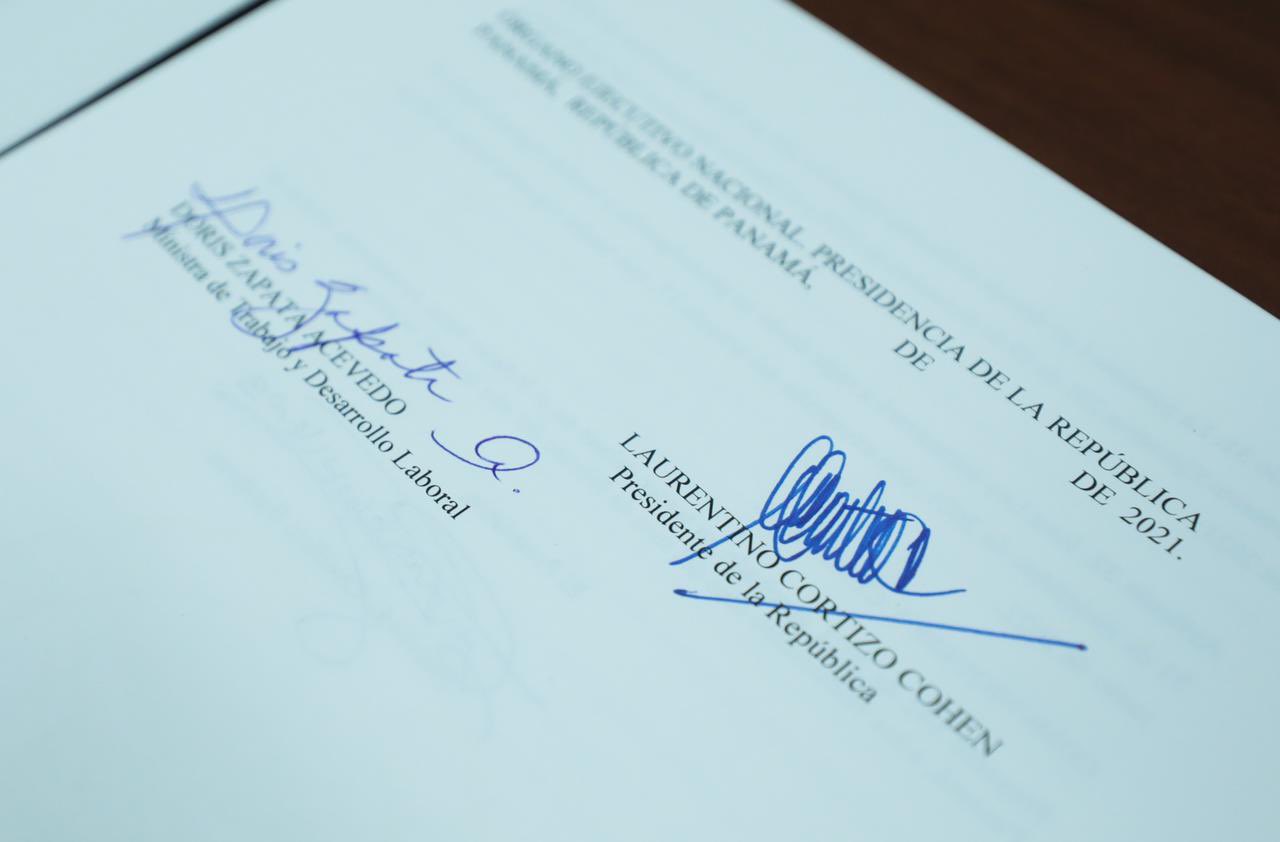 ÓRGANO EJECUTIVO NACIONAL. PRESIDENCIA DE LA REPÚBLICA
PANAMÁ, REPÚBLICA DE PANAMÁ, DE DE 2021.
Doris Zapata A.
DORIS ZAPATA ACEVEDO
Ministra de Trabajo y Desarrollo Laboral
LAURENTINO CORTIZO COHEN
Presidente de la República